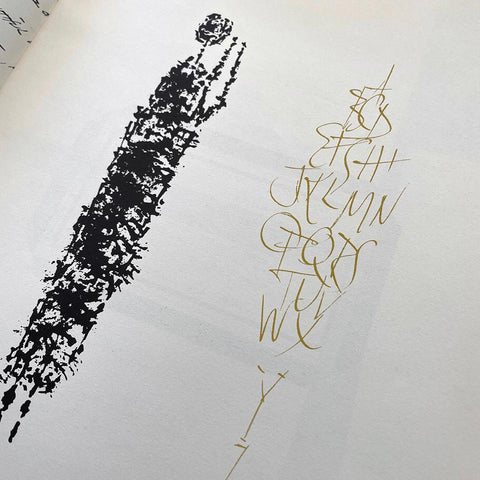 A
BCD
EFGH
JKLMN
OPQRS
TUV
WX
Y